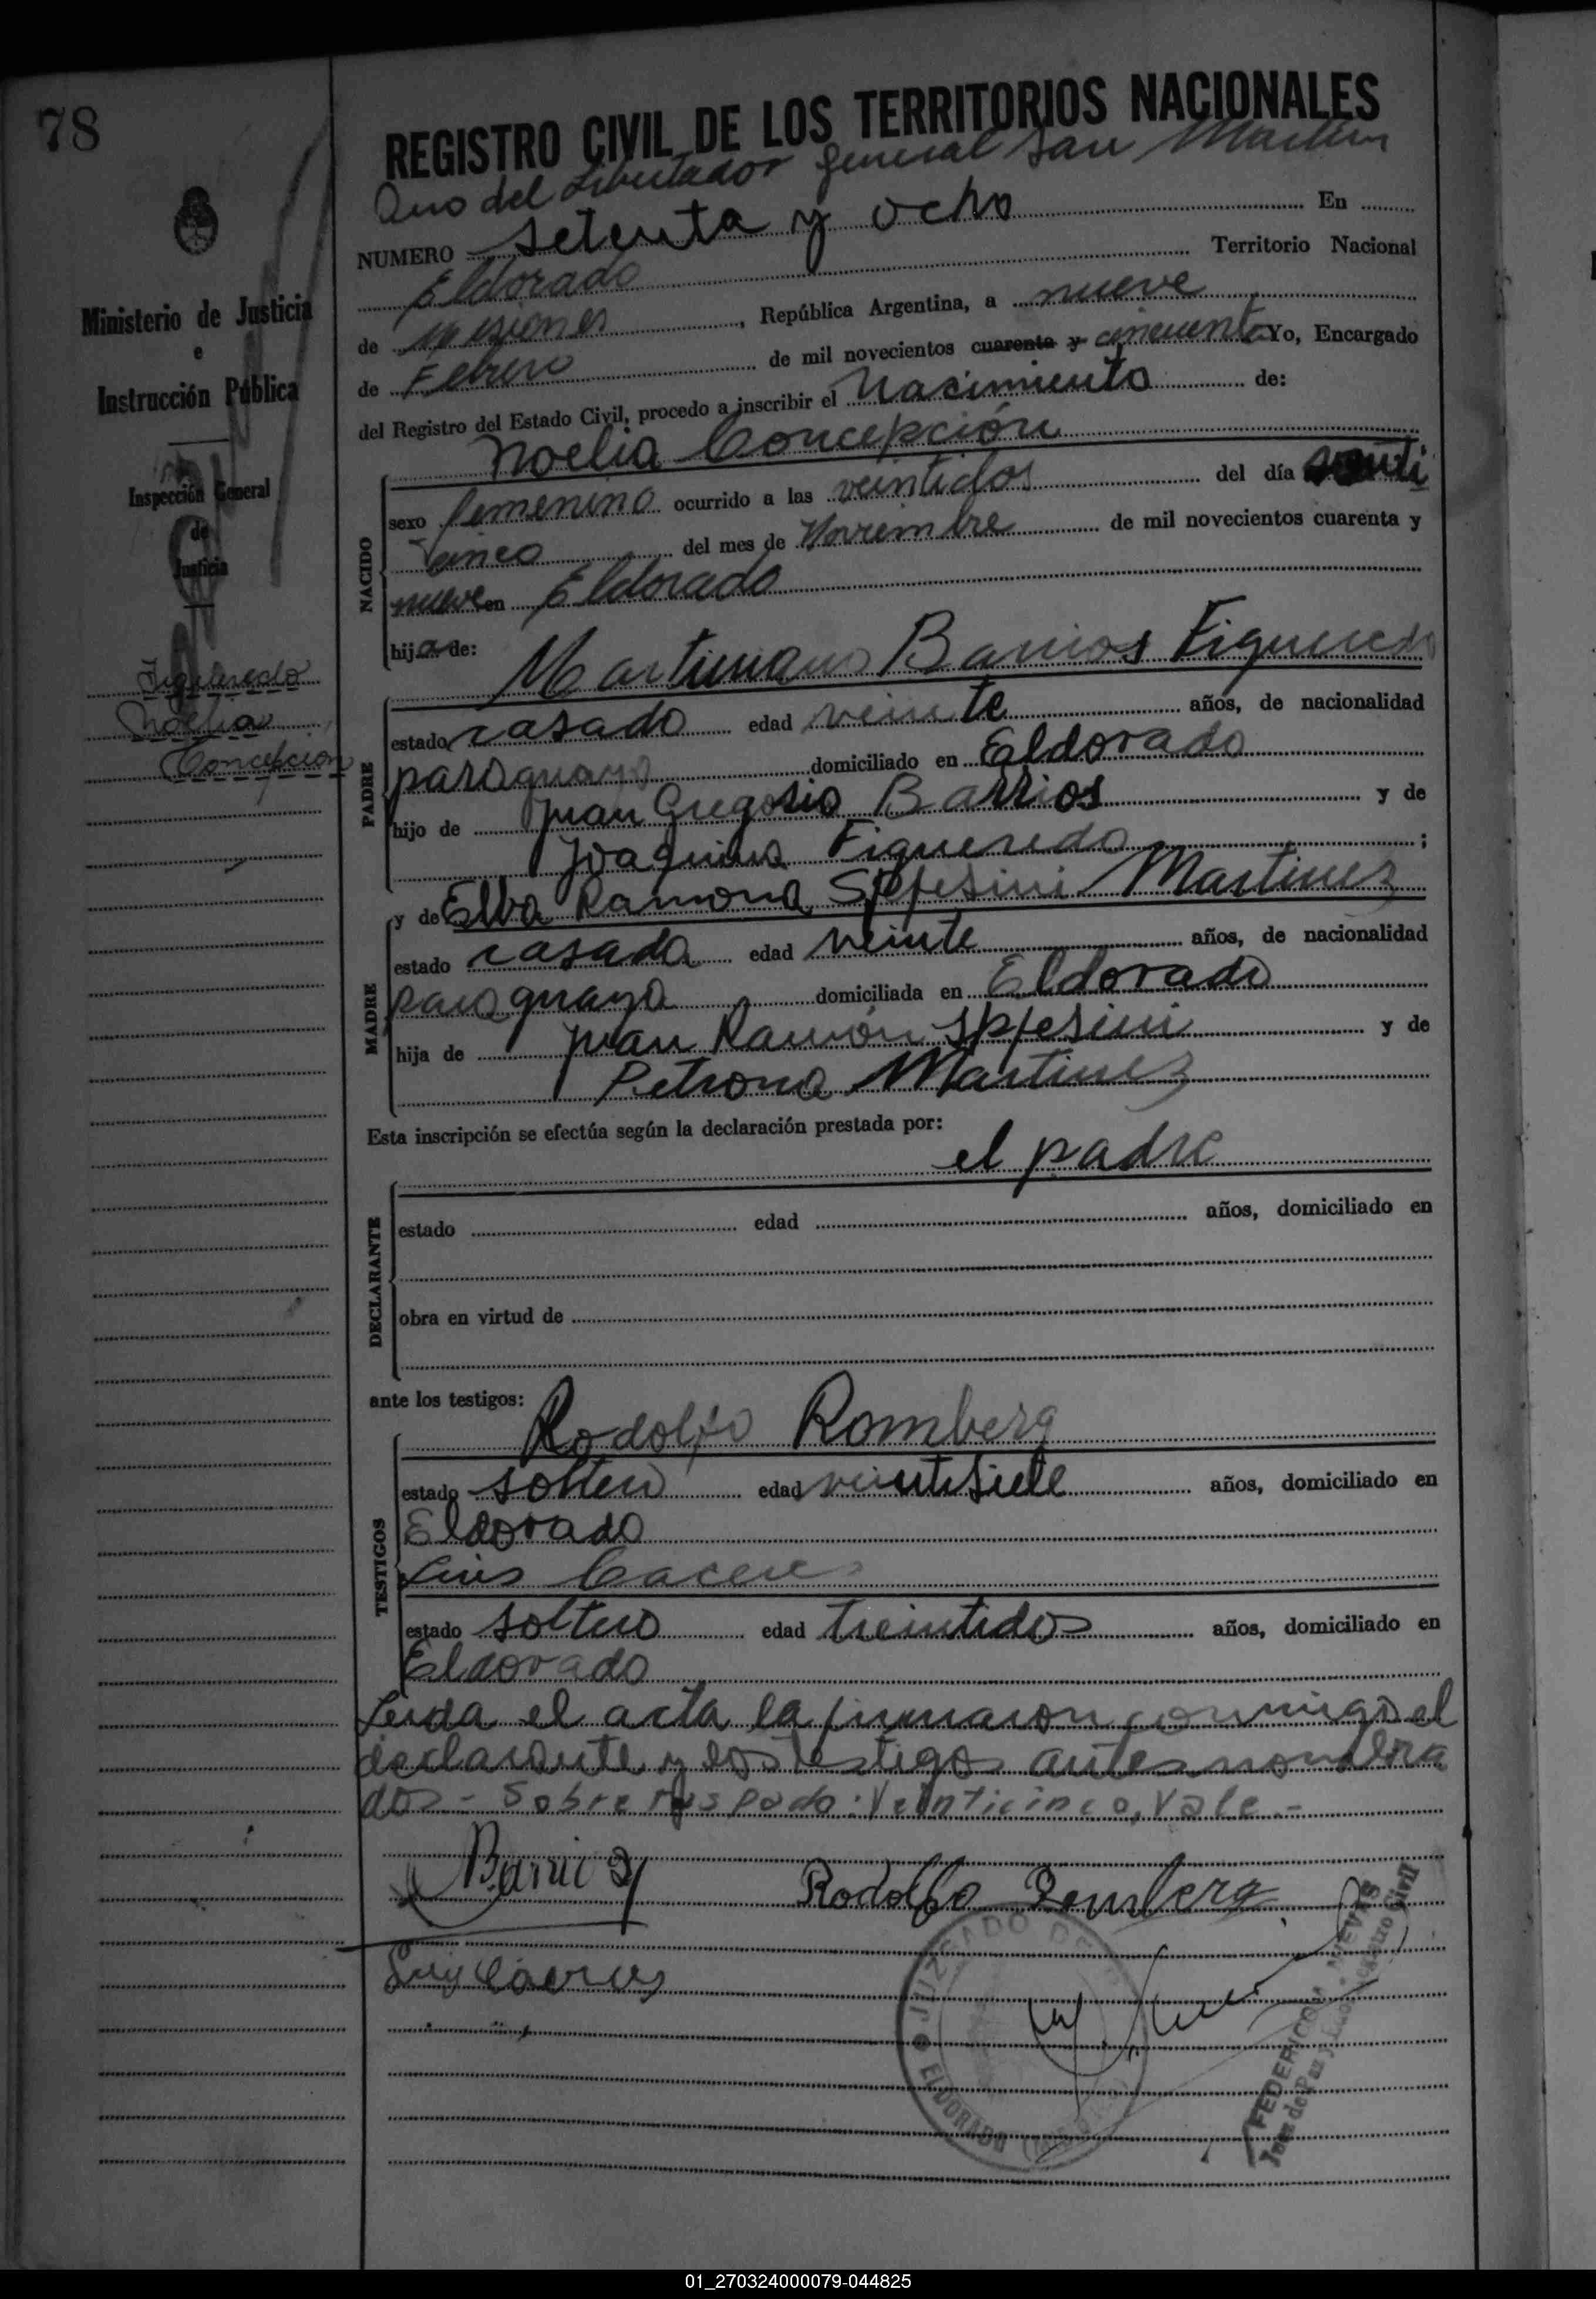 78
REGISTRO CIVIL DE LOS TERRITORIOS NACIONALES
Ano del Libertador General San Martin
NUMERO setenta y ocho En
Eldorado Territorio Nacional
de Misiones, República Argentina, a nueve
de Febrero de mil novecientos cuarenta y cincuenta Yo, Encargado
del Registro del Estado Civil, procedo a inscribir el Nacimiento de:
Noelia Concepción
sexo femenino ocurrido a las veintidos del día veinti
cinco del mes de Noviembre de mil novecientos cuarenta y
nueve en Eldorado
hija de:
NACIDO
Martiniano Barrios Figueredo
estado casado edad veinte años, de nacionalidad
paraguayo domiciliado en Eldorado
hijo de Juan Gregorio Barrios y de
Joaquina Figueredo;
PADRE
y de Elva Ramona Martinez
estado casada edad veinte años, de nacionalidad
paraguaya domiciliada en Eldorado
hija de Juan Ramón y de
Petrona Martinez
MADRE
Esta inscripción se efectúa según la declaración prestada por:
el padre
estado edad años, domiciliado en
obra en virtud de
DECLARANTE
ante los testigos:
Rodolfo Romberg
estado soltero edad veintisiete años, domiciliado en
Eldorado
Luis Caceres
estado soltero edad treintidos años, domiciliado en
Eldorado
TESTIGOS
Leida el acta la firmaron conmigo el
declarante y los testigos antes nombra
dos - Sobre raspado: Veinticinco, Vale.-
Barrios
Rodolfo Romberg
Luis Caceres
JUZGADO DE
ELDORADO
FEDERICO
Juez de Paz Registro Civil
Ministerio de Justicia
e
Instrucción Pública
Inspección General
de
Justicia
Figueredo
Noelia
Concepcion
01_270324000079-044825